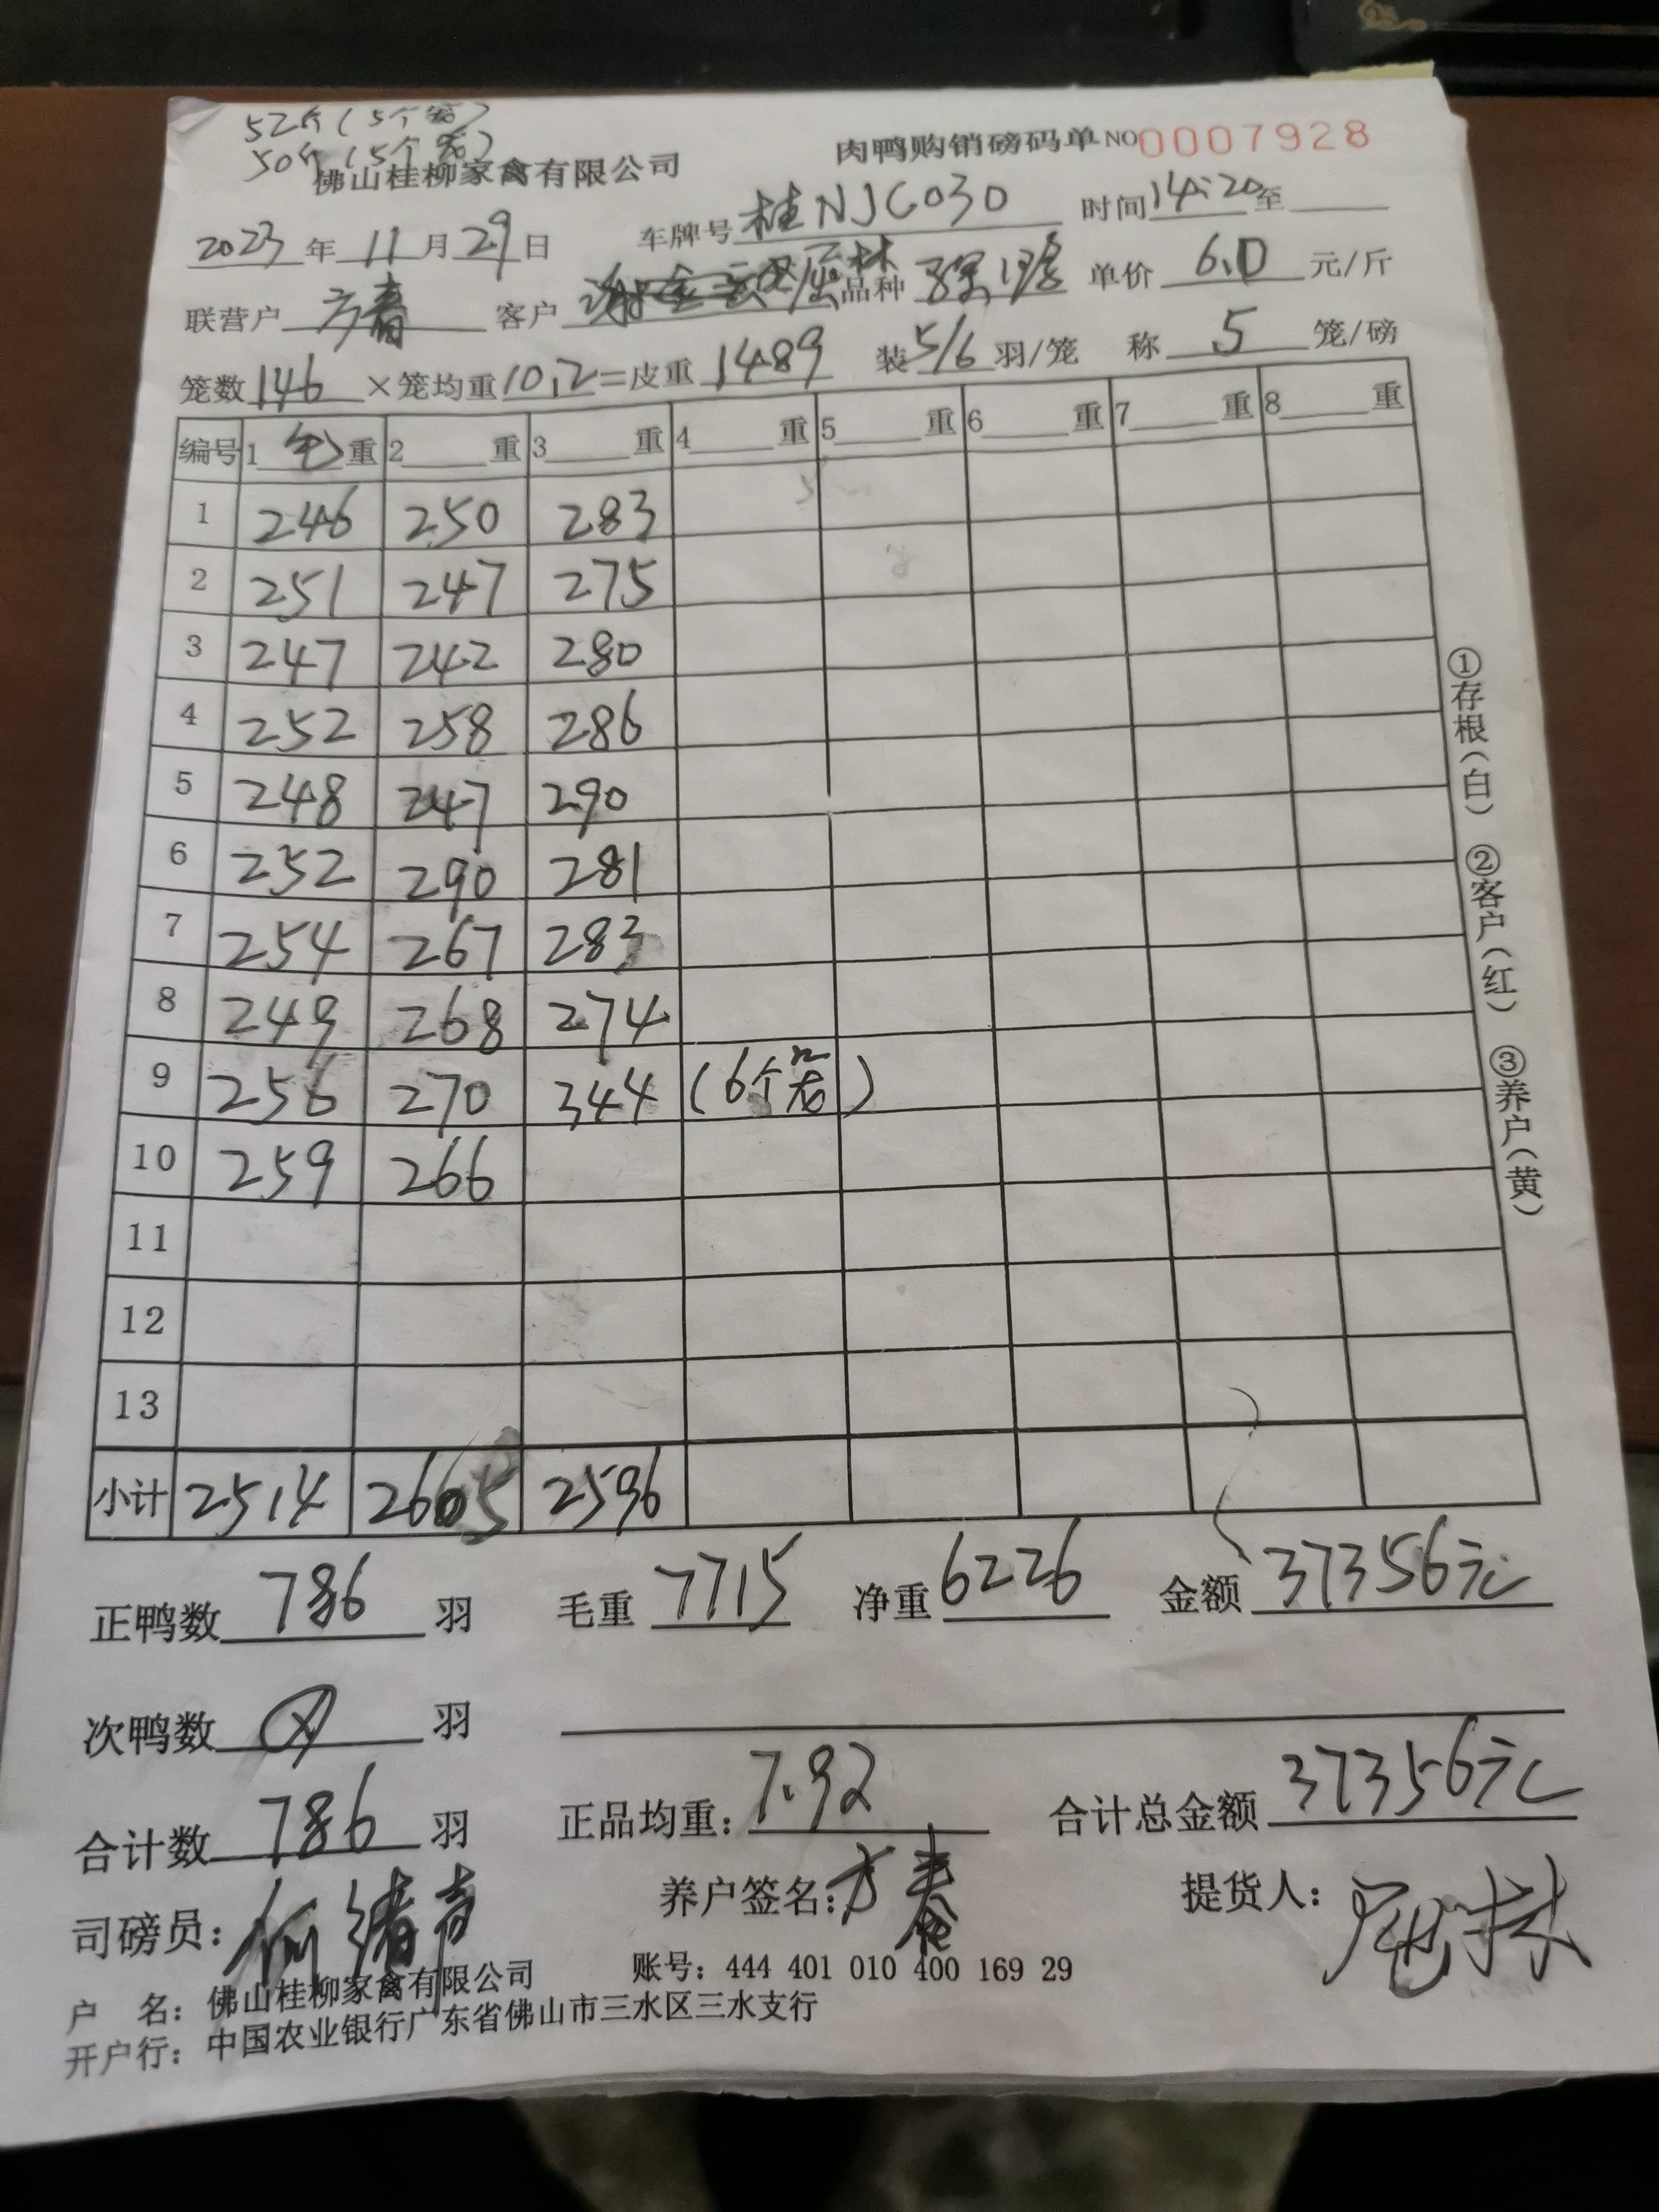 52斤(5个笼)
50斤(5个笼)
佛山桂柳家禽有限公司 肉鸭购销磅码单 NO 0007928
2023 年 11 月 29 日 车牌号 桂NJC030 时间 14:20 至
联营户 方春 客户 品种 单价 6.0 元/斤
笼数 146 ×笼均重 10.2 =皮重 1489 装 5/6 羽/笼 称 5 笼/磅
编号 1 毛 重 2 重 3 重 4 重 5 重 6 重 7 重 8 重
1 246 250 283
2 251 247 275
3 247 242 280
4 252 258 286
5 248 247 290
6 252 290 281
7 254 267 283
8 249 268 274
9 256 270 344 (6个笼)
10 259 266
11
12
13
小计 2514 2605 2596
①存根(白) ②客户(红) ③养户(黄)
正鸭数 786 羽 毛重 7715 净重 6226 金额 37356元
次鸭数 羽
合计数 786 羽 正品均重: 7.92 合计总金额 37356元
司磅员: 养户签名: 方春 提货人:
户 名: 佛山桂柳家禽有限公司 账号: 444 401 010 400 169 29
开户行: 中国农业银行广东省佛山市三水区三水支行